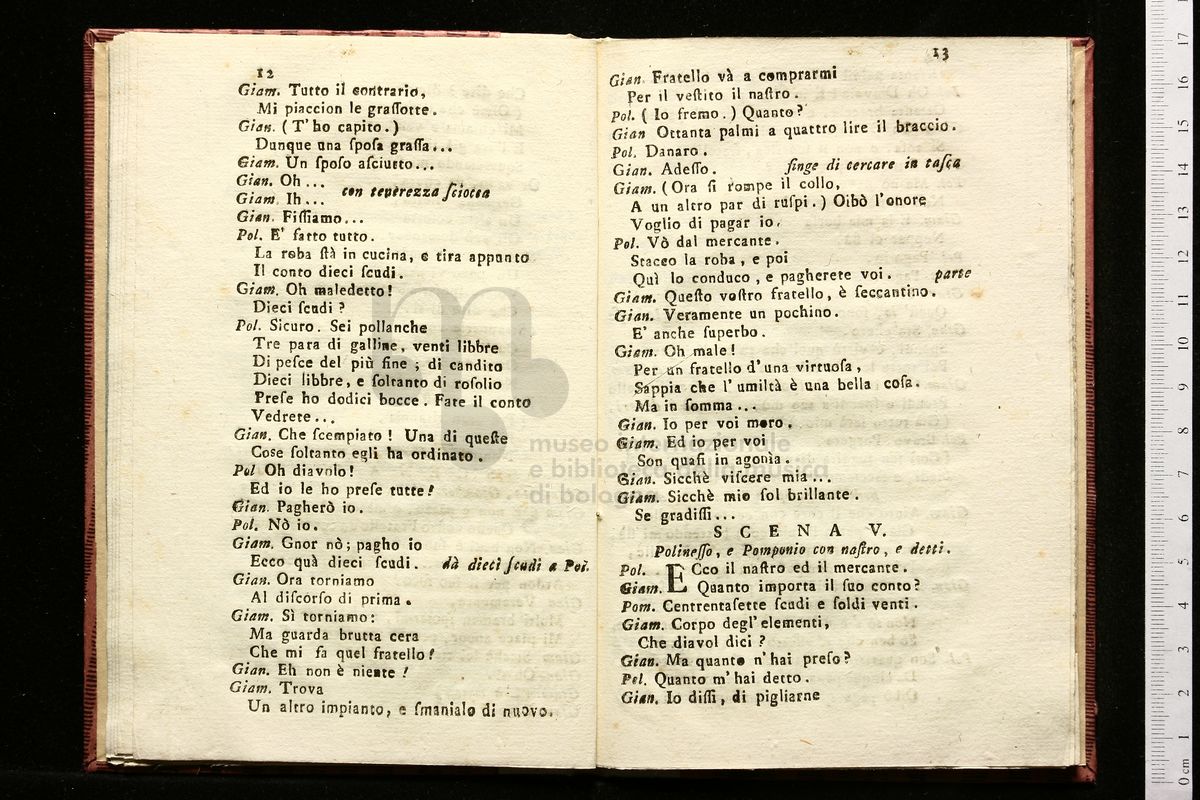 12
Giam. Tutto il contrario,
Mi piaccion le graſſotte.
Gian. (T' ho capito.)
Dunque una ſpoſa graſſa...
Giam. Un ſpoſo aſciutto...
Gian. Oh...
con tenerezza ſciocca
Giam. Ih...
Gian. Fiſſiamo...
Pol. E' fatto tutto.
La roba ſtà in cucina, e tira appunto
Il conto dieci ſcudi.
Giam. Oh maledetto!
Dieci ſcudi?
Pol. Sicuro. Sei pollanche
Tre para di galline, venti libbre
Di peſce del più fine; di candito
Dieci libbre, e ſoltanto di roſolio
Preſe ho dodici bocce. Fate il conto
Vedrete...
Gian. Che ſcempiato! Una di queſte
Coſe ſoltanto egli ha ordinato.
Pol Oh diavolo!
Ed io le ho preſe tutte!
Gian. Pagherò io.
Pol. Nò io.
Giam. Gnor nò; pagho io
Ecco quà dieci ſcudi. dà dieci ſcudi a Pol.
Gian. Ora torniamo
Al diſcorſo di prima.
Giam. Sì torniamo:
Ma guarda brutta cera
Che mi fa quel fratello!
Gian. Eh non è niente!
Giam. Trova
Un altro impianto, e ſmanialo di nuovo.
13
Gian. Fratello và a comprarmi
Per il veſtito il naſtro.
Pol. (Io fremo.) Quanto?
Gian Ottanta palmi a quattro lire il braccio.
Pol. Danaro.
Gian. Adeſſo. finge di cercare in taſca
Giam. (Ora ſi rompe il collo,
A un altro par di ruſpi.) Oibò l'onore
Voglio di pagar io.
Pol. Vò dal mercante.
Stacco la roba, e poi
Quì lo conduco, e pagherete voi. parte
Giam. Queſto voſtro fratello, è ſeccantino.
Gian. Veramente un pochino.
E' anche ſuperbo.
Giam. Oh male!
Per un fratello d'una virtuoſa,
Sappia che l'umiltà è una bella coſa.
Ma in ſomma...
Gian. Io per voi moro.
Giam. Ed io per voi
Son quaſi in agonìa.
Gian. Sicchè viſcere mia...
Giam. Sicchè mio ſol brillante.
Se gradiſſi...
SCENA V.
Polineſſo, e Pomponio con naſtro, e detti.
Pol. ECco il naſtro ed il mercante.
Giam. Quanto importa il ſuo conto?
Pom. Centrentaſette ſcudi e ſoldi venti.
Giam. Corpo degl'elementi,
Che diavol dici?
Gian. Ma quanto n'hai preſo?
Pol. Quanto m'hai detto.
Gian. Io diſſi, di pigliarne
museo internazionale
e biblioteca della musica
di bologna
0 cm 1 2 3 4 5 6 7 8 9 10 11 12 13 14 15 16 17